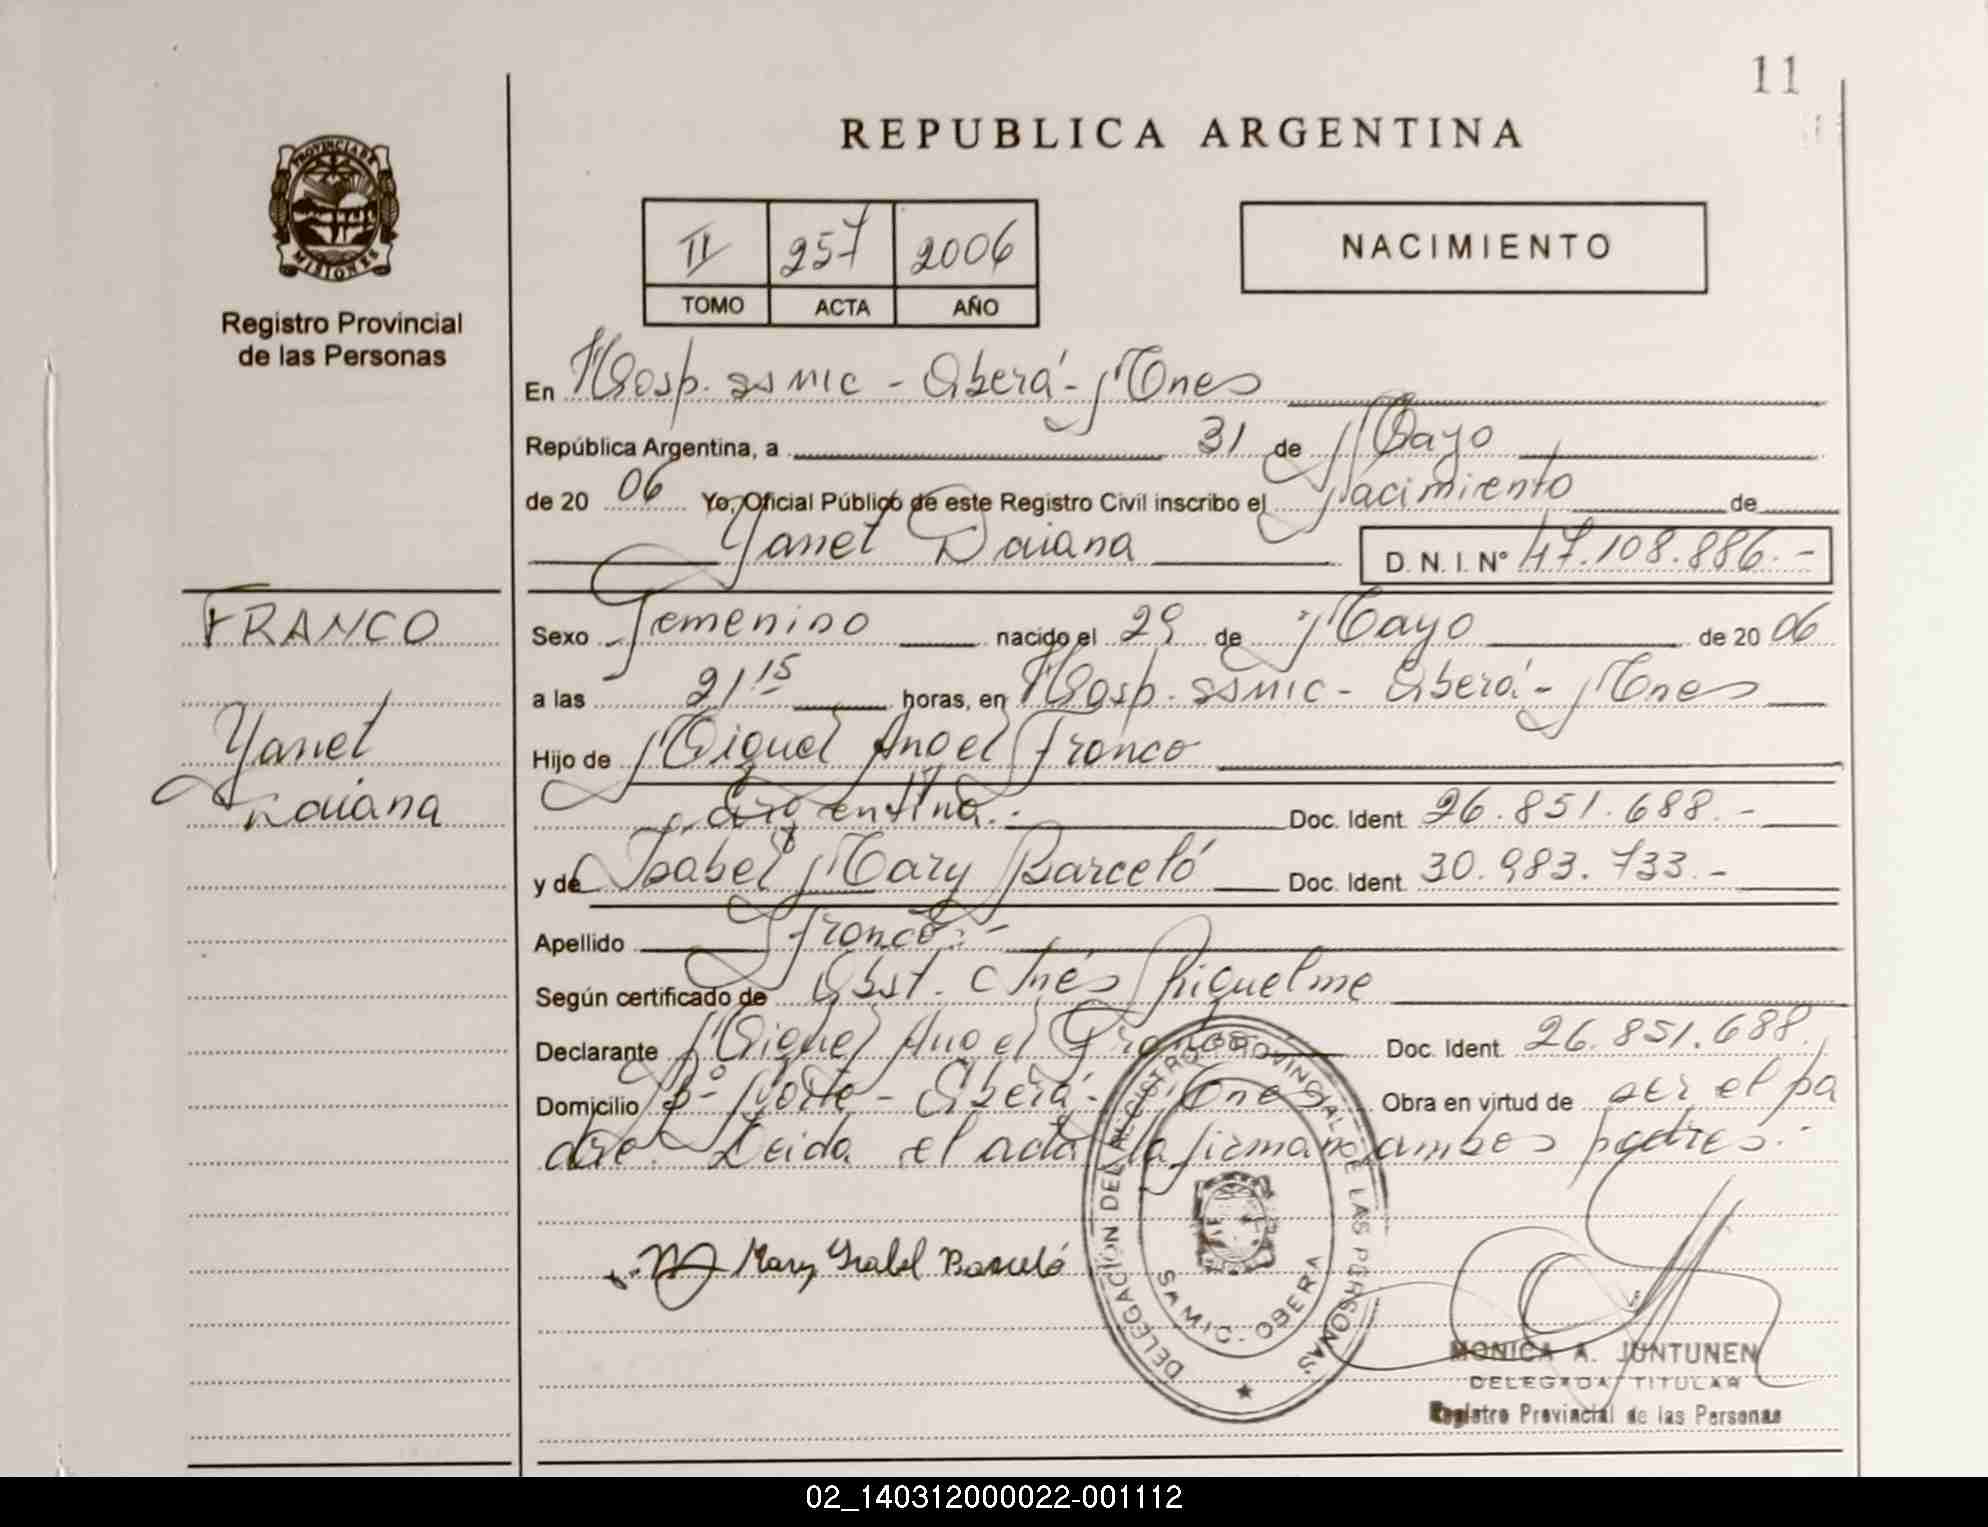 11
REPUBLICA ARGENTINA
PROVINCIA DE
MISIONES
Registro Provincial
de las Personas
II 257 2006
TOMO ACTA AÑO
NACIMIENTO
En Hosp. ssmic - Oberá - Mnes
República Argentina, a 31 de Mayo
de 2006 Yo, Oficial Público de este Registro Civil inscribo el Nacimiento de
Yanet Daiana D. N. I. Nº 47.108.886.-
FRANCO
Yanet
Daiana
Sexo Femenino nacido el 29 de Mayo de 2006
a las 21 15 horas, en Hosp. ssmic - Oberá - Mnes
Hijo de Miguel Angel Franco
Argentina.- Doc. Ident. 26.851.688.-
y de Isabel Mary Barceló Doc. Ident. 30.983.733.-
Apellido Franco.-
Según certificado de Obst. Inés Riquelme
Declarante Miguel Angel Franco Doc. Ident. 26.851.688.
Domicilio Bº Norte - Oberá - Mnes Obra en virtud de ser el pa
dre. Leida el acta la firman ambos padres.-
Mary Isabel Barceló
DELEGACIÓN DEL REGISTRO PROVINCIAL DE LAS PERSONAS
SAMIC - OBERA
MONICA A. JUNTUNEN
DELEGADA TITULAR
Registro Provincial de las Personas
02_140312000022-001112